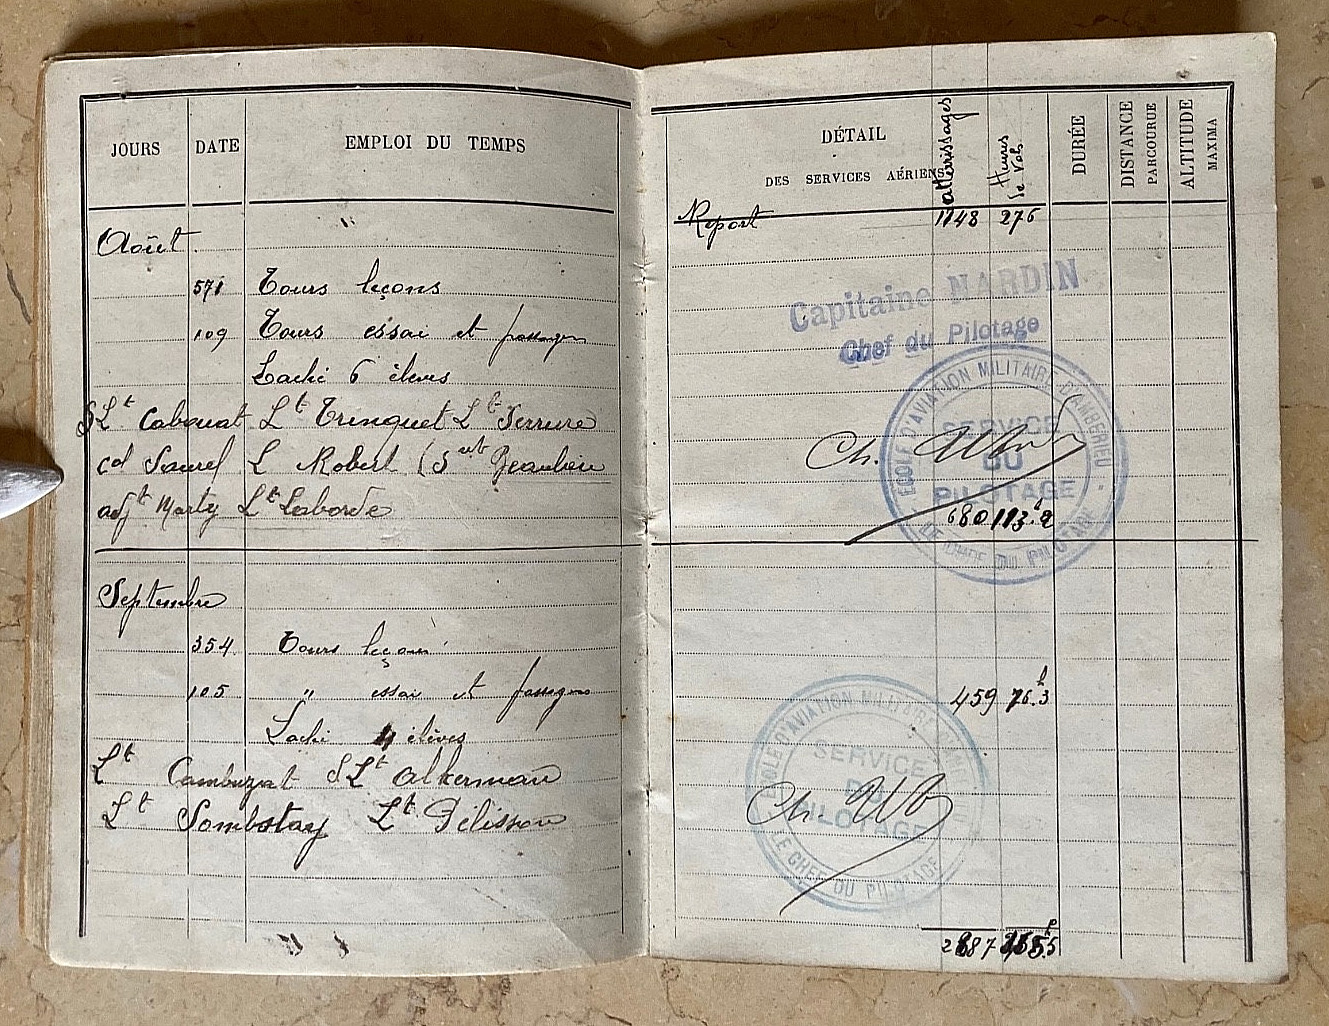 JOURS DATE EMPLOI DU TEMPS
Août
571 Tours leçons
109 Tours essai et passagers
Laché 6 élèves
SLt Cabouat Lt Trinquet Lt Serrure
cd Saurel L Robert (Sous Lt Beaulieu
adjt Marty Lt Laborde
Septembre
354 Tours leçons
105 " essai et passagers
Laché 4 élèves
Lt Cambuzat SLt Alkerman
Lt Sombstay Lt Pélisson
DÉTAIL
DES SERVICES AÉRIENS
atterrissages
Heures de Vol
DURÉE
DISTANCE PARCOURUE
ALTITUDE MAXIMA
Report 1748 276
Capitaine NARDIN
Chef du Pilotage
ECOLE D'AVIATION MILITAIRE D'AMBERIEU
SERVICE
DU
PILOTAGE
LE CHEF DU PILOTAGE
Ch.
680 113h.2
459 76h.3
ECOLE D'AVIATION MILITAIRE
SERVICE
DU
PILOTAGE
LE CHEF DU PILOTAGE
Ch.
2887